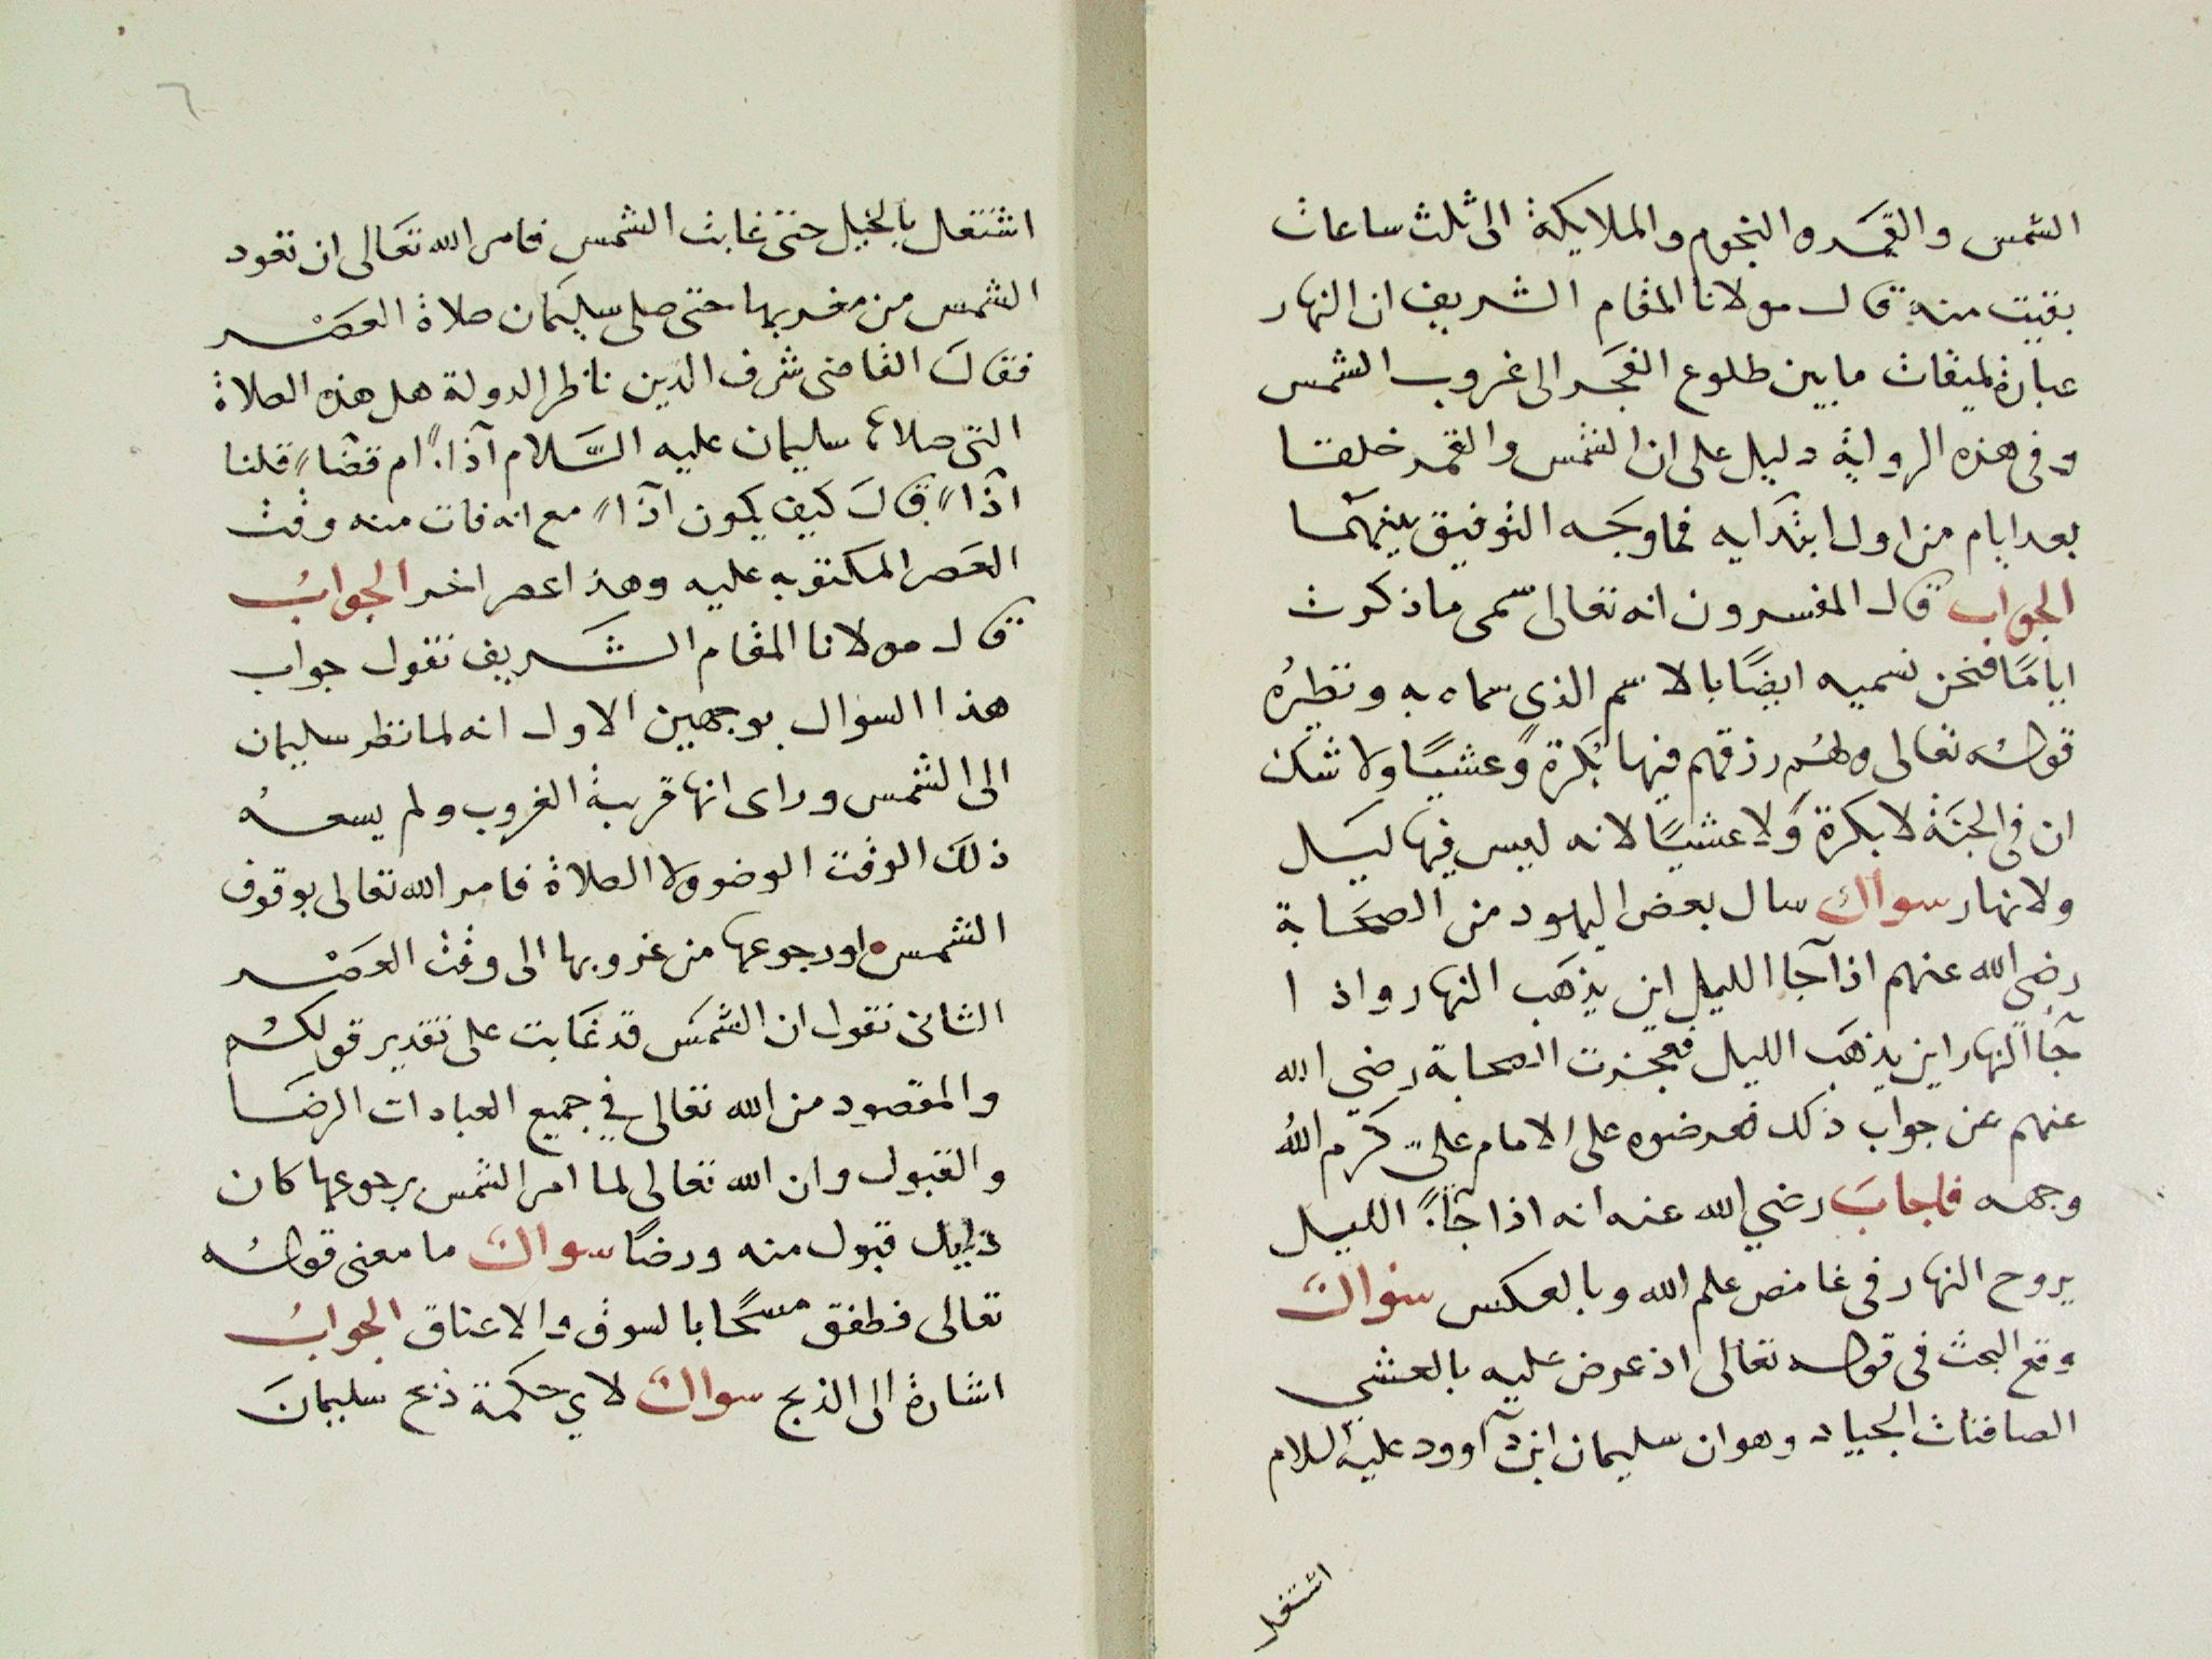 الشمس والقمر والنجوم والملايكة الى ثلث ساعات
بقيت منه قال مولانا المقام الشريف ان النهار
عبارة لميقات مابين طلوع الفجر الى غروب الشمس
وفى هذه الرواية دليل على ان الشمس والقمر خلقتا
بعد ايام من اول ابتدايه فما وجه التوفيق بينهما
الجواب قال المفسرون انه تعالى سمى ما ذكرت
ايامًا فنحن نسميه ايضًا بالاسم الذي سماه به ونظيرُه
قوله تعالى ولهم رزقهم فيها بُكرةً وعشيًا ولا شك
ان فى الجنة لا بكرة ولا عشيًا لانه ليس فيها ليل
ولا نهار سوال سال بعض اليهود من الصحابة
رضي الله عنهم اذا جآ الليل اين يذهب النهار واذا
جآ النهار اين يذهب الليل فعجزت الصحابة رضي الله
عنهم عن جواب ذلك فعرضوه على الامام علىّ كرّم اللهُ
وجهه فاجابَ رضي الله عنه انه اذا جآء الليل
يروح النهار فى غامض علم الله وبالعكس سوال
وقع البحث فى قوله تعالى اذ عرض عليه بالعشي
الصافنات الجياد وهو ان سليمان ابن دآوود عليه السلام
اشتغل
٦
اشتغل بالخيل حتى غابت الشمس فامر الله تعالى ان تعود
الشمس من مغربها حتى صلى سليمان صلاة العصر
فقال القاضى شرف الدين ناظر الدولة هل هذه الصلاة
التى صلاها سليمان عليه السَّلام آداءً ام قضآءً قلنا
آداءً قال كيف يكون آداءً مع انه فات منه وقت
العصر المكتوبه عليه وهذا عصر اخر الجوابُ
قال مولانا المقام الشريف نقول جواب
هذا السوال بوجهين الاول انه لما نظر سليمان
الى الشمس وراى انها قريبة الغروب ولم يسعه
ذلك الوقت الوضو ولا الصلاة فامر الله تعالى بوقوف
الشمس او رجوعها من غروبها الى وقت العصر
الثانى نقول ان الشمس قد غابت على تقدير قولكم
والمقصود من الله تعالى في جميع العبادات الرضا
والقبول وان الله تعالى لما امر الشمس برجوعها كان
دليل قبول منه ورضًا سوال ما معنى قوله
تعالى فطفق مسحًا بالسوق والاعناق الجوابُ
اشارة الى الذبح سوال لاي حكمة ذبح سليمانَ